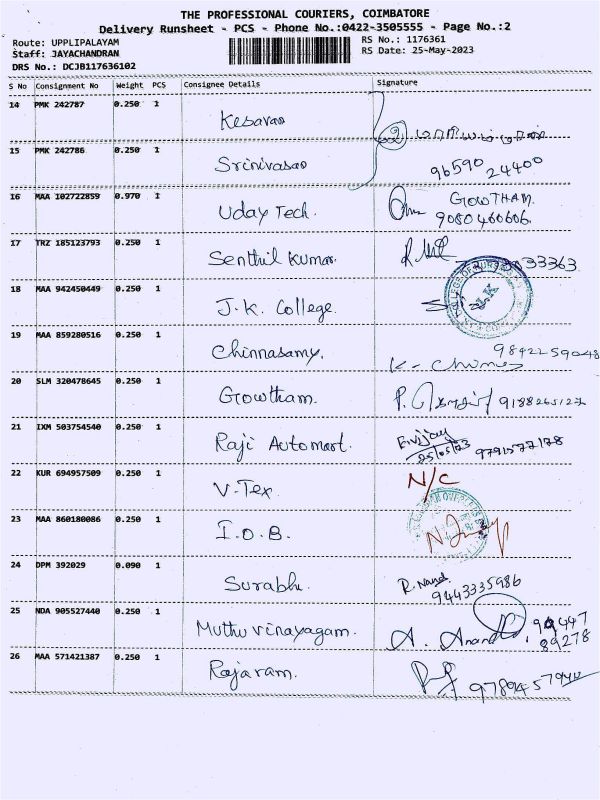 THE PROFESSIONAL COURIERS, COIMBATORE
Delivery Runsheet - PCS - Phone No.:0422-3505555 - Page No.:2
Route: UPPLIPALAYAM RS No.: 1176361
Staff: JAYACHANDRAN RS Date: 25-May-2023
DRS No.: DCJB117636102
S No Consignment No Weight PCS Consignee Details Signature
14 PMK 242787 0.250 1 Kesavan
15 PMK 242786 0.250 1 Srinivasan 96590 24400
16 MAA 102722859 0.970 1 Uday Tech. GOWTHAM.
9080460606.
17 TRZ 185123793 0.250 1 Senthil Kumar. 33363
18 MAA 942450449 0.250 1 J.K. College.
19 MAA 859280516 0.250 1 Chinnasamy. 9842259048
20 SLM 320478645 0.250 1 Gowtham. P. 9188265127
21 IXM 503754540 0.250 1 Raji Automart. 25/05/23 9791577178
22 KUR 694957509 0.250 1 V-Tex. N/C
23 MAA 860180086 0.250 1 I.O.B.
24 DPM 392029 0.090 1 Surabhi. R. Nand
9443335986
25 NDA 905527440 0.250 1 Muthu vinayagam. A. Anand 94447
89278
26 MAA 571421387 0.250 1 Rajaram.